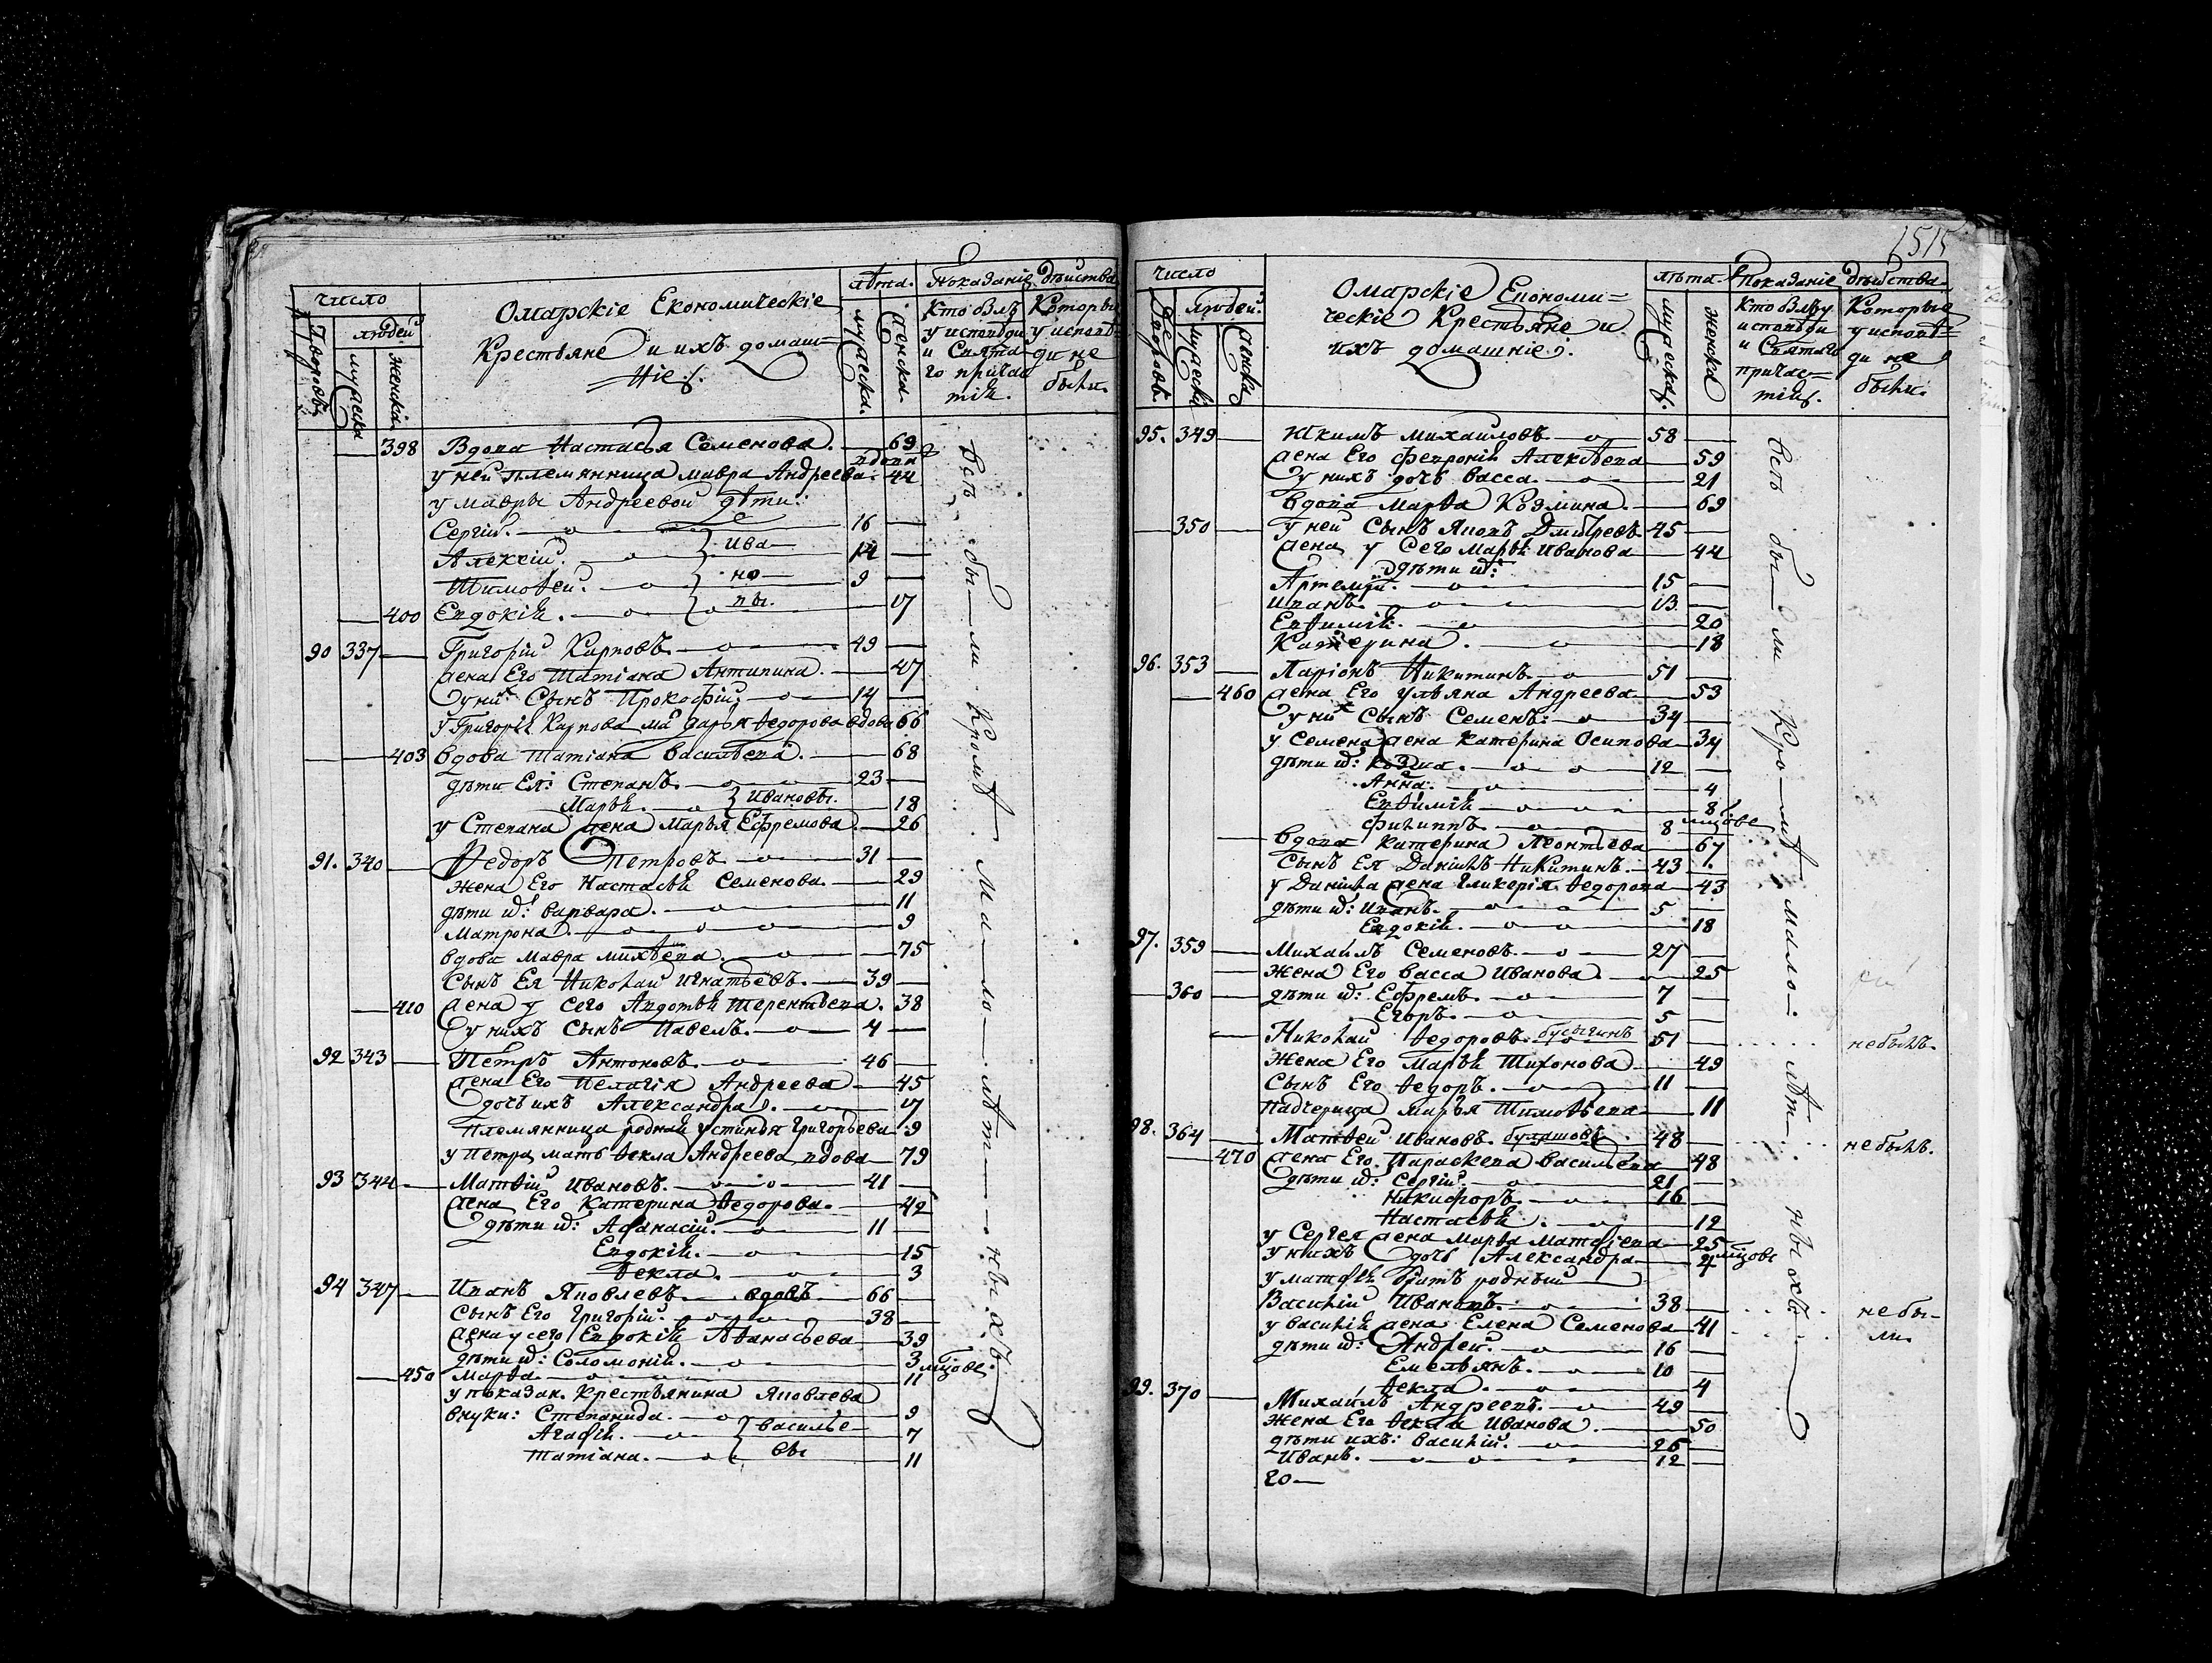 число
Дворовъ
людей
мужеска
женска
Омарскіе Економическіе
Крестьяне и ихъ домаш=
ніе
лѣта.
мужеска.
женска.
Показаніе дѣйства
Кто былъ
у исповѣди
и Свята
го причас
тія.
Которые
у исповѣ=
ди не
были.
398 Вдова Настасья Семенова. 69
у ней племянница мавра Андреева вдова 44
у мавры Андреевой дѣти:
Сергій. 16
Алексій. Ива 14
Тимоѳей. но 9
400 Евдокія. вы. 17
90 337 Григорій Карповъ. 49
жена Его Татіана Антипина. 47
у них Сынъ Прокофій. 14
у Григорія Карпова ма Дарья ѳедорова вдова 66
403 вдова Татіана васильева. 68
дѣти Ея: Степанъ. 23
Марья. Ивановы. 18
у Степана жена Марья Ефремова. 26
91. 340 Ѳедоръ Петровъ. 31
жена Его Настасья Семенова. 29
дѣти их: варвара. 11
Матрона. 9
вдова мавра михѣева. 75
Сынъ Ея Николай Игнатьевъ. 39
410 жена у сего Авдотья Терентьева. 38
у нихъ сынъ Павелъ. 4
92 343 Петръ Антоновъ. 46
жена Его Пелагія Андреева 45
дочь ихъ Александра. 17
племянница родная устинья Григорьева 9
у Петра мать ѳекла Андреева вдова 79
93 344 Матвій Ивановъ. 41
жена Его Катерина ѳедорова. 42
дѣти их: Афанасій. 11
Евдокія. 15
ѳекла. 3
94 347 Иванъ Яковлевъ. вдовъ 66
Сынъ Его Григорій. 38
жена у сего Евдокія Аѳанасьева 39
дѣти их: Соломонія. 3 мцове
450 Марѳа. 11
у показан. крестьянина Яковлева
внуки: Степанида. 9
Агафія. василье 7
Татіана. вы 11
всѣ были кромѣ малолѣтныхъ
1515
число
Дворовъ.
людей.
мужеска
женска
Омарскіе Економи=
ческіе Крестьяне и
ихъ домашніе.
лѣта.
мужеска.
женска
Показаніе дѣйства.
Кто былъ у
исповѣди
и Святаго
причас=
тія.
Которые
у исповѣ=
ди не
были.
95. 349 Якимъ михайловъ 58
жена Его феvронія Алексѣева 59
у нихъ дочь васса. 21
вдова Марѳа Козмина. 69
350 у ней Сынъ Яковъ Дмитревъ 45
жена у Сего марья Иванова 44
дѣти их:
Артемій. 15
Иванъ. 13.
Евѳимія. 20
Катерина. 18
96. 353 Ларіонъ Никитинъ. 51
460 жена Его Ульяна Андреева 53
у них Сынъ Семенъ. 34
у Семена жена Катерина Осипова 34
дѣти их: Козма. 12
Анна. 4
Евѳимія 8
Филиппъ. 8 мцове
вдова Катерина Леонтьева 67
Сынъ Ея Данилъ Никитинъ. 43
у Данила жена Гликерія ѳедорова 43
дѣти их: Иванъ. 5
Евдокія. 18
97. 359 Михайлъ Семеновъ. 27
жена Его васса Иванова. 25
360 дѣти их: Ефремъ. 7
Егоръ. 5
Николай ѳедоровъ бусыгинъ 51 небылъ.
жена Его Марья Тихонова 49
Сынъ Его ѳедоръ. 11
Падчерица марья Тимоѳеева 11
98. 364 Матвей Ивановъ. булашовъ 48 небылъ.
470 жена Его Параскева Васильева 48
дѣти их: Сергій. 21
Никифоръ. 16
Настасья. 12
у Сергея жена Марѳа Матфіева 25
у нихъ дочь Александра 4 мцове
у матфія братъ родный
Василій Ивановъ. 38 небы-
у василія жена Елена Семенова 41 ли
дѣти их: Андрей. 16
Емельянъ. 10
ѳекла. 4
99. 370 Михайлъ Андреевъ. 49
жена Его ѳекла Иванова. 50
дѣти ихъ: василій. 26
Иванъ. 12
го
всѣ были кромѣ малолѣтныхъ